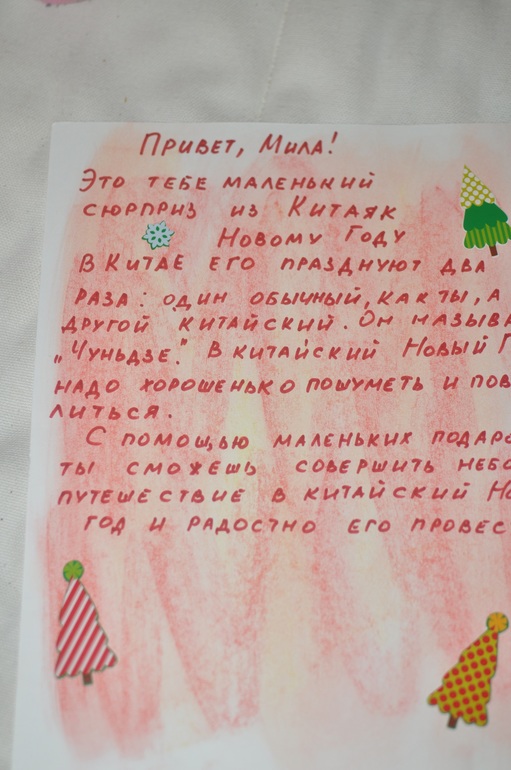 Привет, Мила!
Это тебе маленький
сюрприз из Китаяк
Новому Году
В Китае его празднуют два
раза: один обычный, как ты, а
другой китайский. Он назыв
„Чуньдзе". В китайский Новый Г
надо хорошенько пошуметь и пов
литься.
С помощью маленьких подар
ты сможешь совершить небо
путешествие в китайский Но
год и радостно его провес